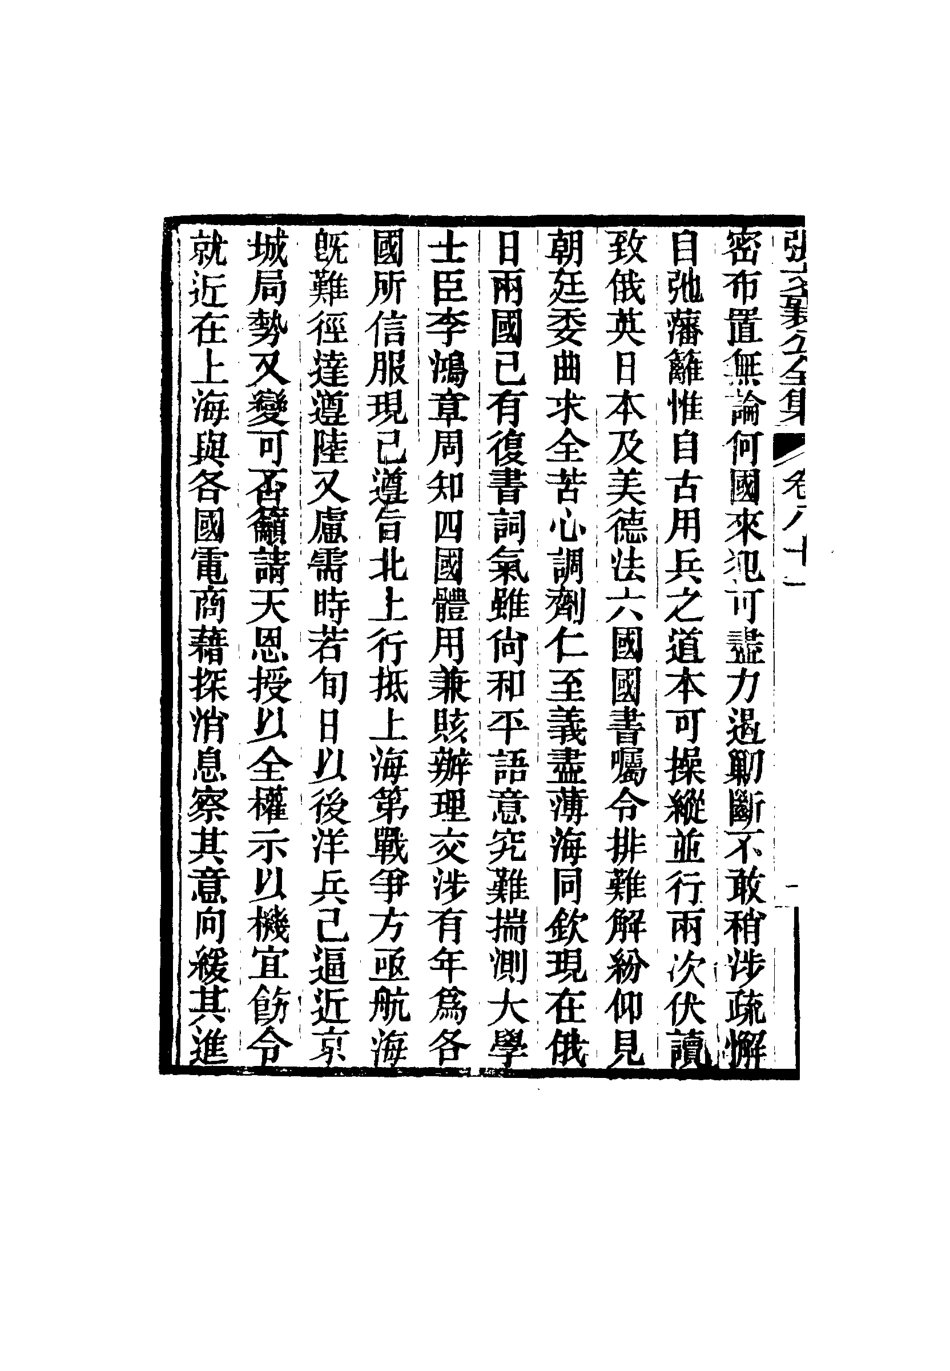 張文襄公全集 卷八十一 一
密布置無論何國來犯可盡力遏勦斷不敢稍涉疏懈
自弛藩籬惟自古用兵之道本可操縱並行兩次伏讀
致俄英日本及美德法六國國書囑令排難解紛仰見
朝廷委曲求全苦心調劑仁至義盡薄海同欽現在俄
日兩國已有復書詞氣雖尙和平語意究難揣測大學
士臣李鴻章周知四國體用兼賅辦理交涉有年爲各
國所信服現已遵旨北上行抵上海第戰爭方亟航海
旣難徑達遵陸又慮需時若旬日以後洋兵已逼近京
城局勢又變可否籲請天恩授以全權示以機宜飭令
就近在上海與各國電商藉探消息察其意向緩其進